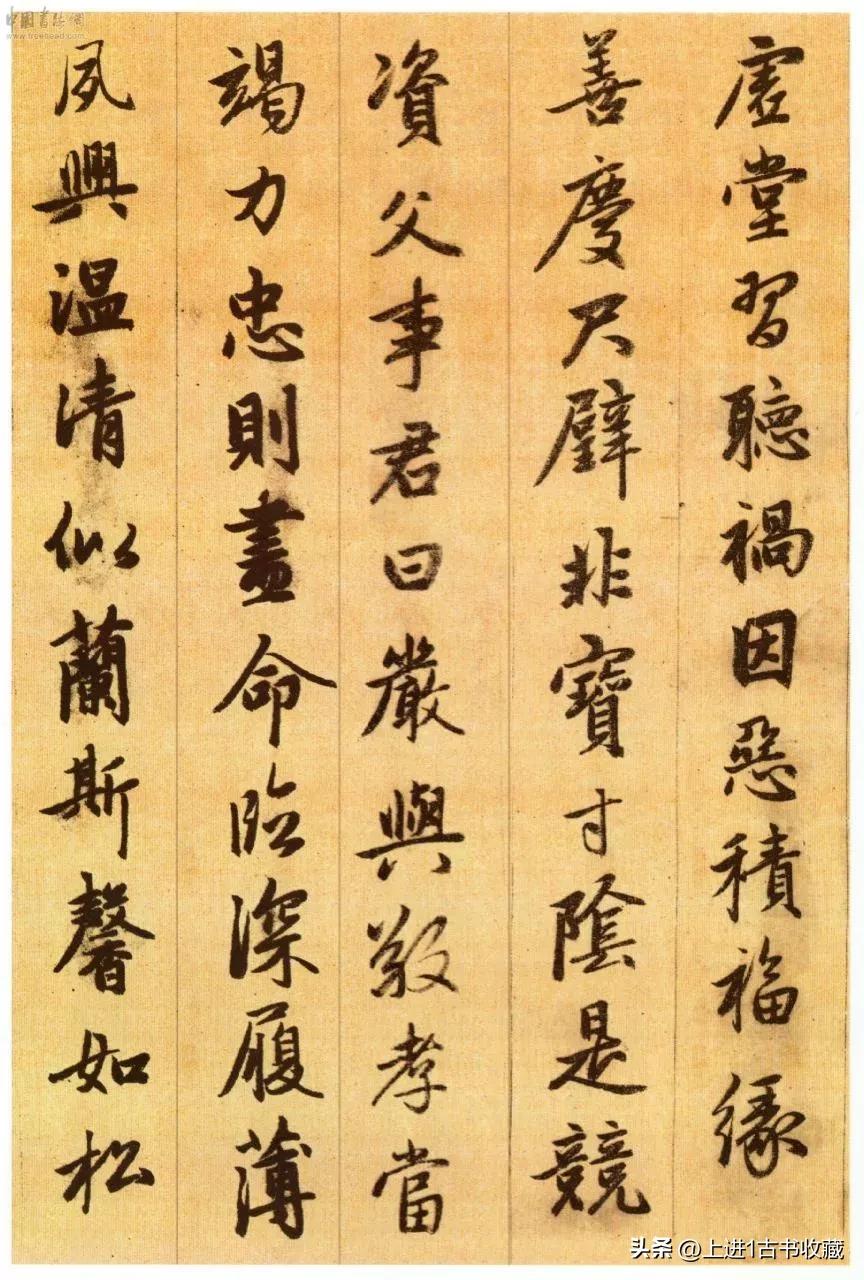 虛堂習聽禍因惡積福緣
善慶尺璧非寶寸陰是競
資父事君曰嚴與敬孝當
竭力忠則盡命臨深履薄
夙興温清似蘭斯馨如松
中國書法網
www.freehead.com
头条 @上进1古书收藏